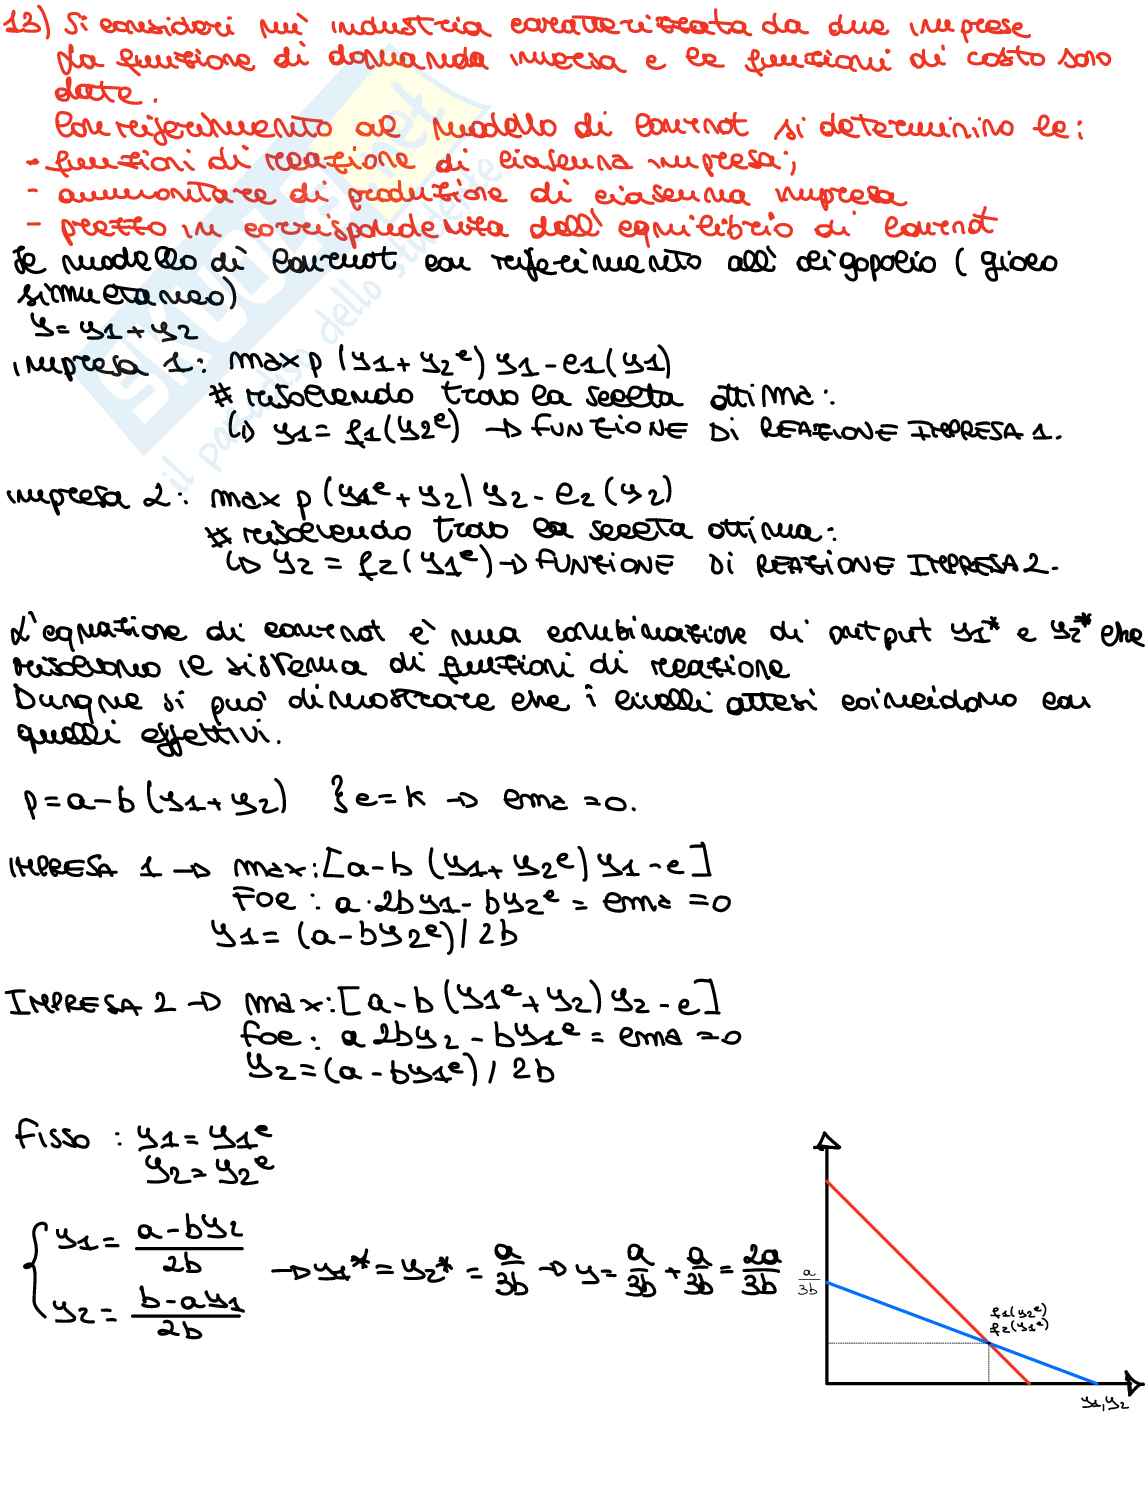 13) Si consideri un'industria caratterizzata da due imprese
La funzione di domanda inversa e le funzioni di costo sono
date.
Con riferimento al modello di Cournot si determinino le:
- funzioni di reazione di ciascuna impresa;
- ammontare di produzione di ciascuna impresa
- prezzo in corrispondenza dell'equilibrio di Cournot
Il modello di Cournot con riferimento all'oligopolio (gioco
simultaneo)
y = y1 + y2
impresa 1: max p (y1 + y2^e) y1 - c1(y1)
# risolvendo trovo la scelta ottima:
↳ y1 = f1(y2^e) → FUNZIONE DI REAZIONE IMPRESA 1.
impresa 2: max p (y1^e + y2) y2 - c2 (y2)
# risolvendo trovo la scelta ottima:
↳ y2 = f2(y1^e) → FUNZIONE DI REAZIONE IMPRESA 2.
L'equazione di cournot è una combinazione di output y1* e y2* che
risolvono il sistema di funzioni di reazione
Dunque si può dimostrare che i livelli attesi coincidono con
quelli effettivi.
p = a - b (y1 + y2) { c = k → cma = 0.
IMPRESA 1 → max: [a - b (y1 + y2^e) y1 - c]
FOC : a · 2by1 - by2^e = cma = 0
y1 = (a - by2^e) / 2b
IMPRESA 2 → max: [a - b (y1^e + y2) y2 - c]
foc : a 2by2 - by1^e = cma = 0
y2 = (a - by1^e) / 2b
Fisso : y1 = y1^e
y2 = y2^e
{ y1 = (a - by2)/2b
y2 = (b - ay1)/2b → y1* = y2* = a/3b → y = a/3b + a/3b = 2a/3b
a/3b
f1(y2^e)
f2(y1^e)
y1, y2
SKUOLA.net
il paradiso dello studente